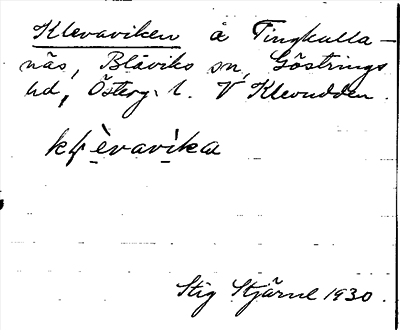 Klevaviken å Tingkulla-
näs, Blåviks sn, Göstrings
hd, Österg. l. V Klevudden.
klɛ̀vavìka
Stig Stjärne 1930.